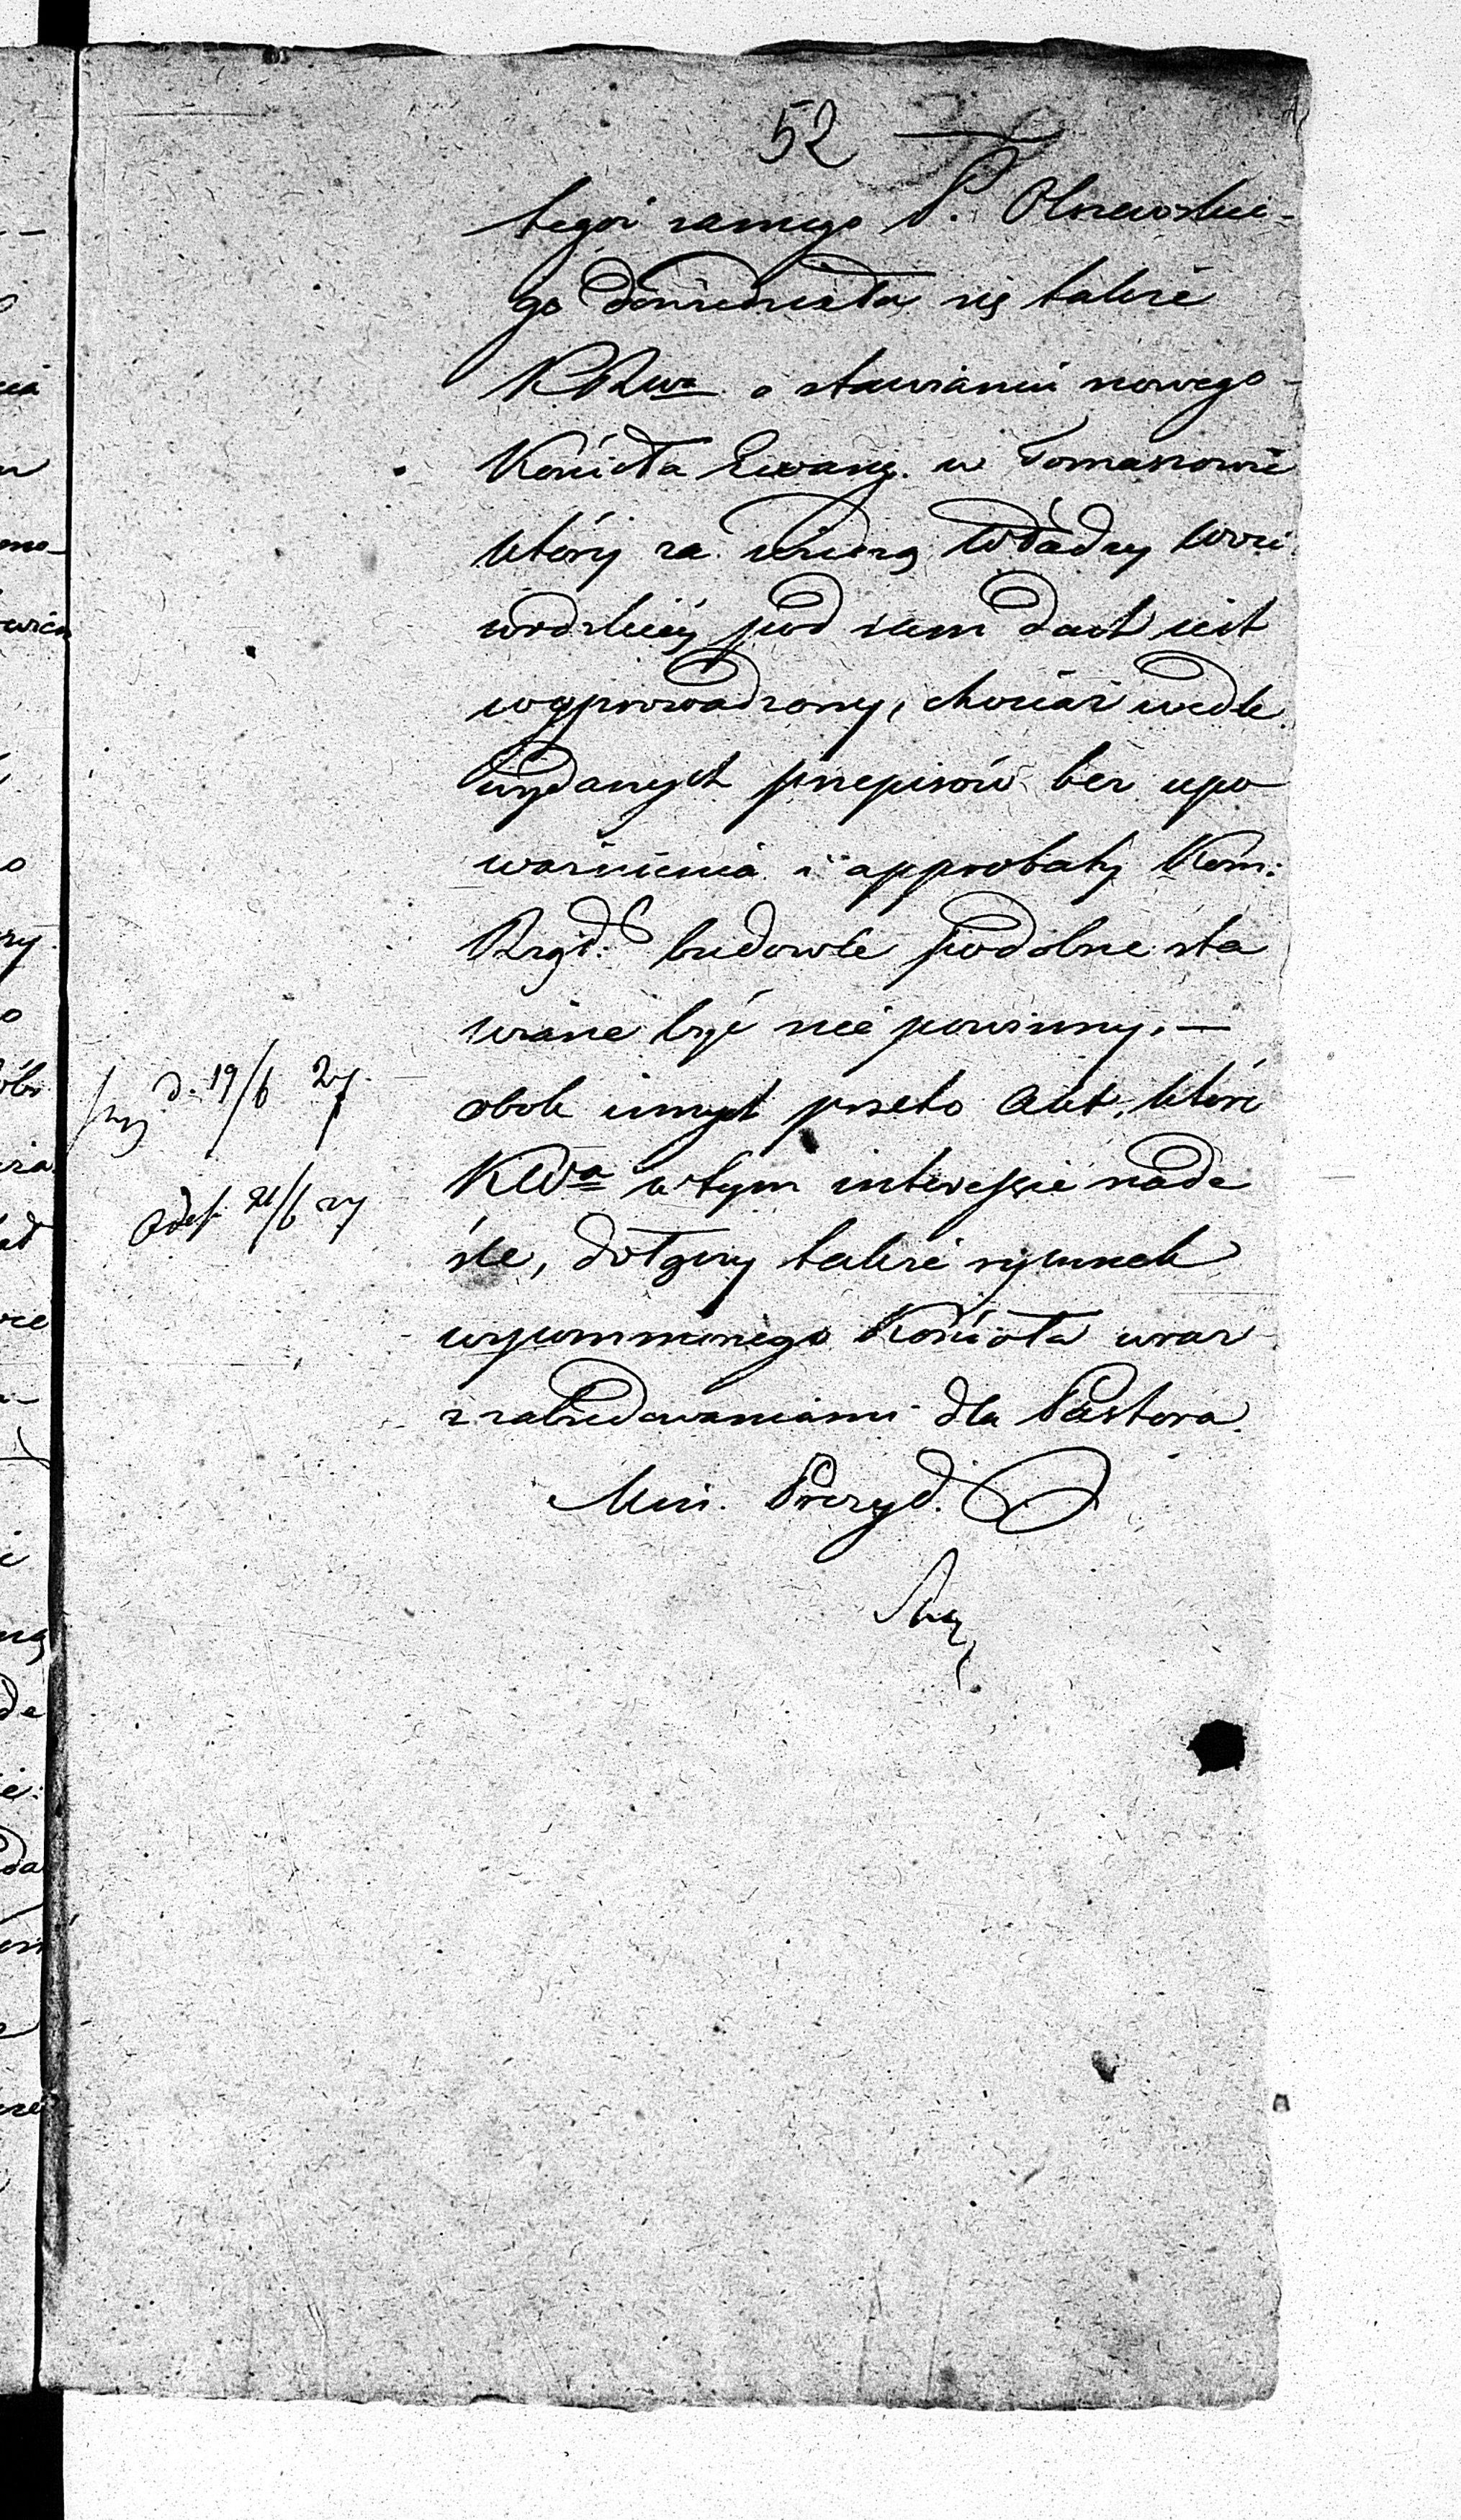 52
tegoż samego P. Olszewskie-
go dowiedziała się także
KRwa o stawianiu nowego
Kościoła Ewang. w Tomaszowie
który za wiedzą Władzy Woje
wódzkiéy pod sam dach jest
wyprowadzony, chociaż wedle
wydanych przepisów bez upo
ważnienia i approbaty Kom:
Rząd: budowle podobne sta
wiane być nie powinny. —
obok innych przeto Akt, które
KWa w tym interessie nade
śle, dołączy także rysunek
wspomnionego Kościoła wraz
z zabudowaniami dla Pastora.
Min. Prezyd.
d. 19/6 27
Odesł. 21/6 27